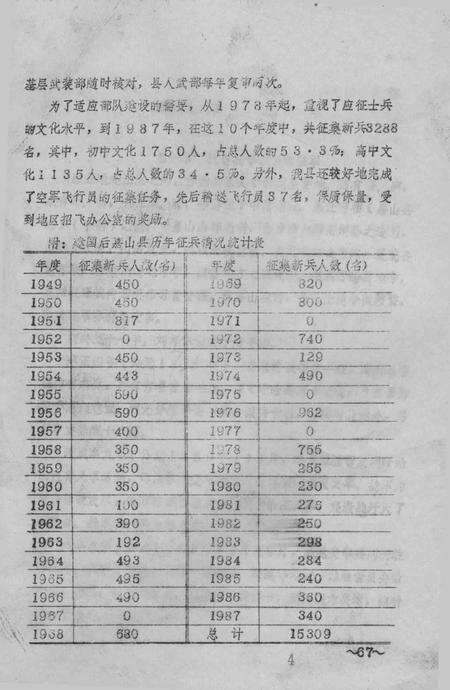 基层武装部随时核对，县人武部每年复审两次。
为了适应部队建设的需要，从1978年起，重视了应征士兵
的文化水平，到1987年，在这10个年度中，共征集新兵3288
名，其中，初中文化1750人，占总人数的53·3%；高中文
化1135人，占总人数的34·5%。另外，我县还较好地完成
了空军飞行员的征集任务，先后输送飞行员37名，保质保量，受
到地区招飞办公室的奖励。
附：建国后嘉山县历年征兵情况统计表
年度 征集新兵人数（名） 年度 征集新兵人数（名）
1949 450 1969 820
1950 450 1970 800
1951 817 1971 0
1952 0 1972 740
1953 450 1973 129
1954 443 1974 490
1955 590 1975 0
1956 590 1976 962
1957 400 1977 0
1958 350 1978 755
1959 350 1979 255
1960 350 1980 230
1961 100 1981 276
1962 390 1982 250
1963 192 1983 298
1964 493 1984 284
1965 495 1985 240
1966 490 1986 360
1967 0 1987 340
1968 680 总计 15309
～67～
4